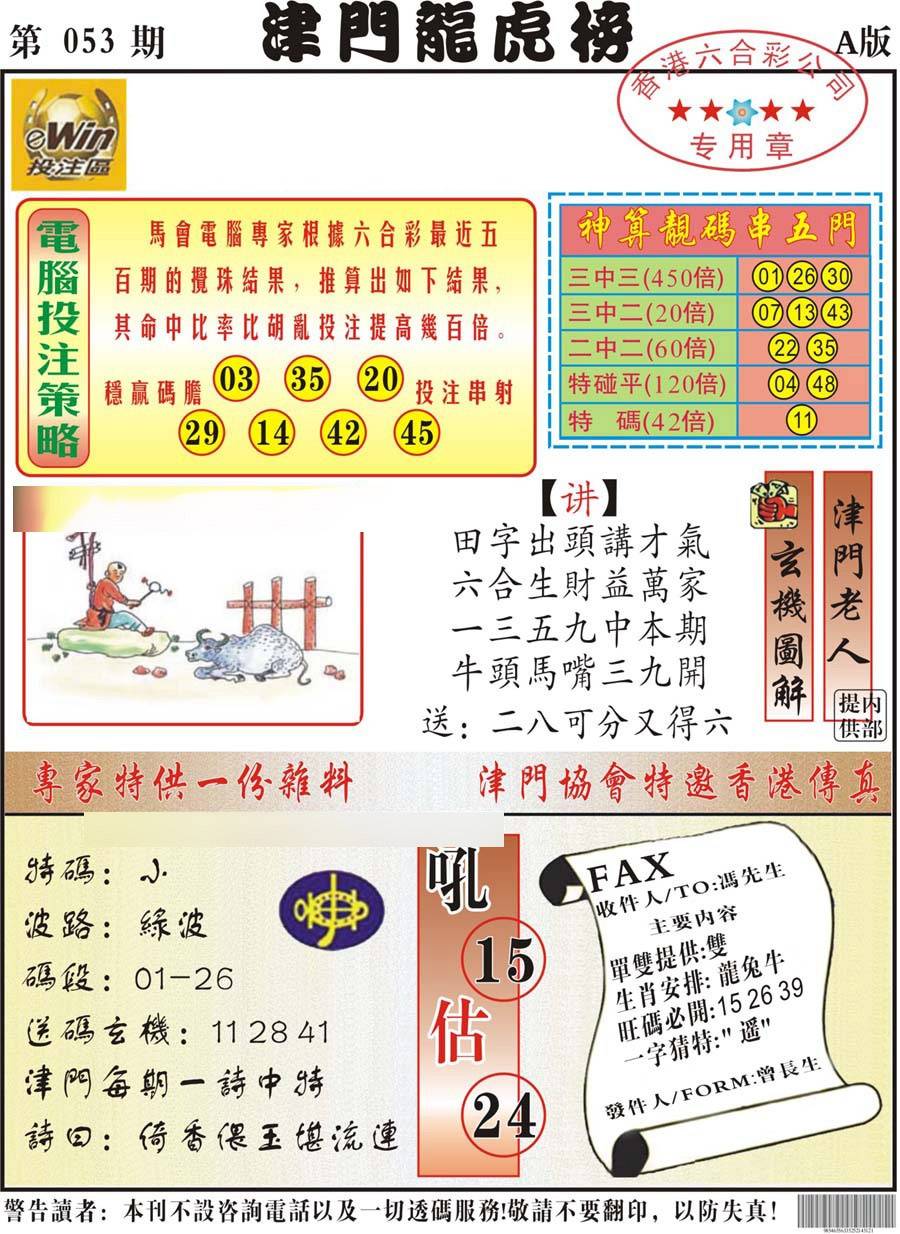 第 053 期
津門龍虎榜
A版
香港六合彩公司
专用章
eWin
投注區
電腦投注策略
馬會電腦專家根據六合彩最近五
百期的攪珠結果，推算出如下結果，
其命中比率比胡亂投注提高幾百倍。
穩贏碼膽 03 35 20 投注串射
29 14 42 45
神算靚碼串五門
三中三(450倍) 01 26 30
三中二(20倍) 07 13 43
二中二(60倍) 22 35
特碰平(120倍) 04 48
特 碼(42倍) 11
【讲】
田字出頭講才氣
六合生財益萬家
一三五九中本期
牛頭馬嘴三九開
送：二八可分又得六
玄機圖解
津門老人
内部提供
專家特供一份雜料
津門協會特邀香港傳真
特碼：小
波路：綠波
碼段：01-26
送碼玄機：11 28 41
津門每期一詩中特
詩曰：倚香偎玉堪流連
吼
15
估
24
FAX
收件人/TO:馮先生
主要内容
單雙提供:雙
生肖安排:龍兔牛
旺碼必開:15 26 39
一字猜特:"遥"
發件人/FORM:曾長生
警告讀者：本刊不設咨詢電話以及一切透碼服務!敬請不要翻印，以防失真！